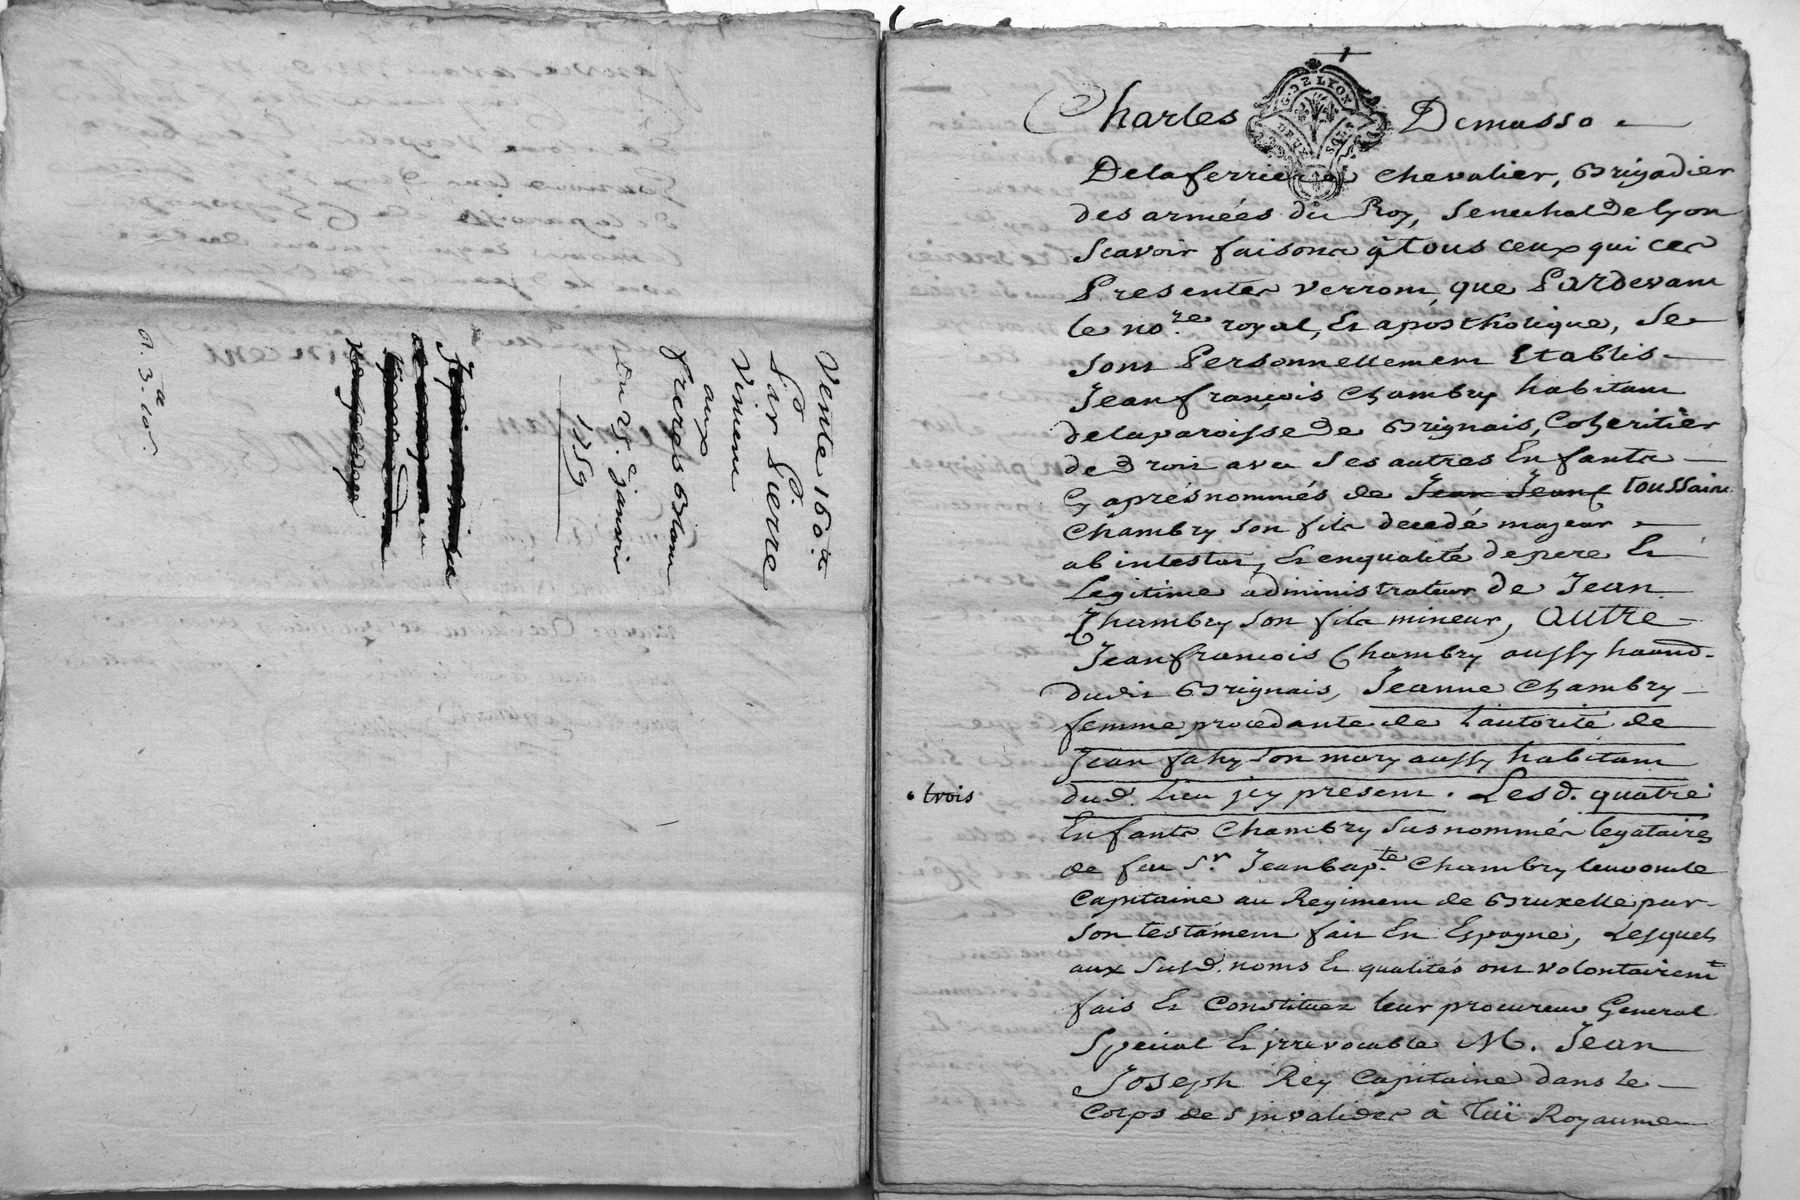 Vente 160.ᵗᵗ
Par Pierre
Vincent
aux
freres Blanc
du 25. Janvier
1759
R. 3.ᵃ 10ˢ.
G. DE LYON
DEUX SOLS
Charles Demasso
Delaferriere chevalier, Brigadier
des armées du Roy, Senechal de Lyon
Scavoir faisons q̃ tous ceux qui ces
Presentes verront, que Pardevant
le no.ʳᵉ royal, Et apostholique, Se
Sont Personnellement Etablis
Jean françois Chambry habitant
de la paroisse de Brignais, Coheritier
de droit avec Ses autres Enfants
Cy aprés nommés de Jean Jeanf toussaint
Chambry Son fils decedé majeur
ab intestat, Et en qualité de pere Et
Legitime administrateur de Jean
Chambry Son fils mineur, Autre
Jean francois Chambry aussy
dudit Brignais, Jeanne Chambry
femme procedante de L'autorité de
Jean fahy Son mary aussy habitant
dud. Lieu jcy present. Lesd. quatre
trois
Enfants Chambry Susnommés legataires
de feu S.ʳ Jean bap.ᵗᵉ Chambry leur oncle
Capitaine au Regiment de Bruxelle par
Son testament fait En Espagne, Lesquels
aux Susd. noms Et qualités ont volontairem.ᵗ
fais Et Constitues leur procureur General
Special Et jrrevocable M. Jean
Joseph Rey Capitaine dans le
Corps des jnvalides à Royaume